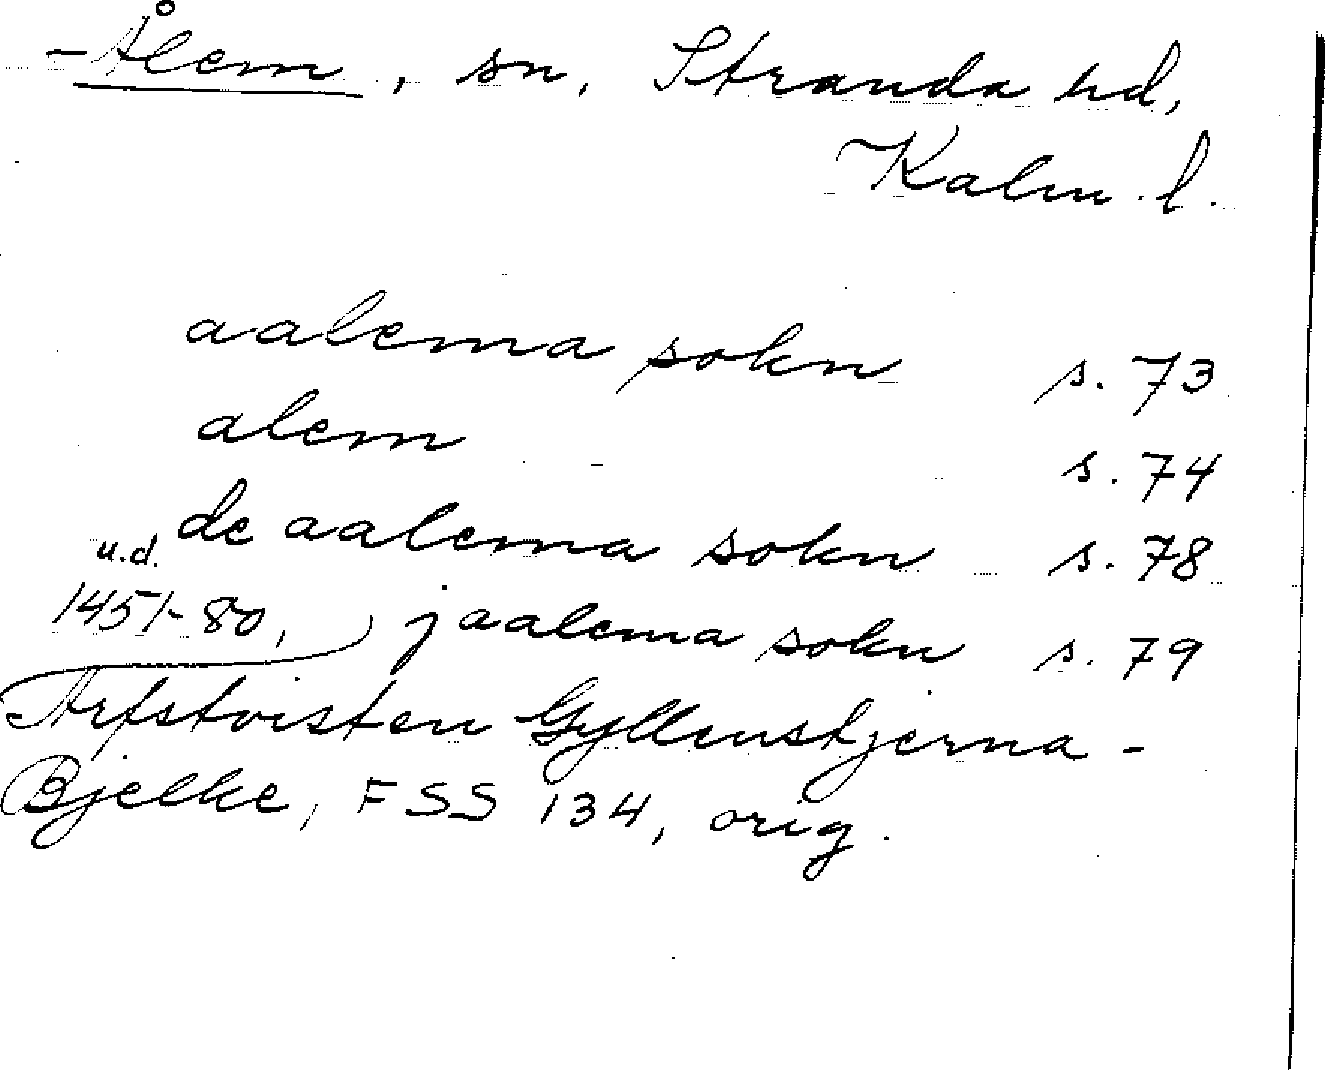 Ålem, sn, Stranda hd,
Kalm. l.
aalema sokn s. 73
alem s. 74
de aalema sokn s. 78
u.d.
1451-80, j aalema sokn s. 79
Arfstvisten Gyllenstjerna-
Bjelke, FSS 134, orig.